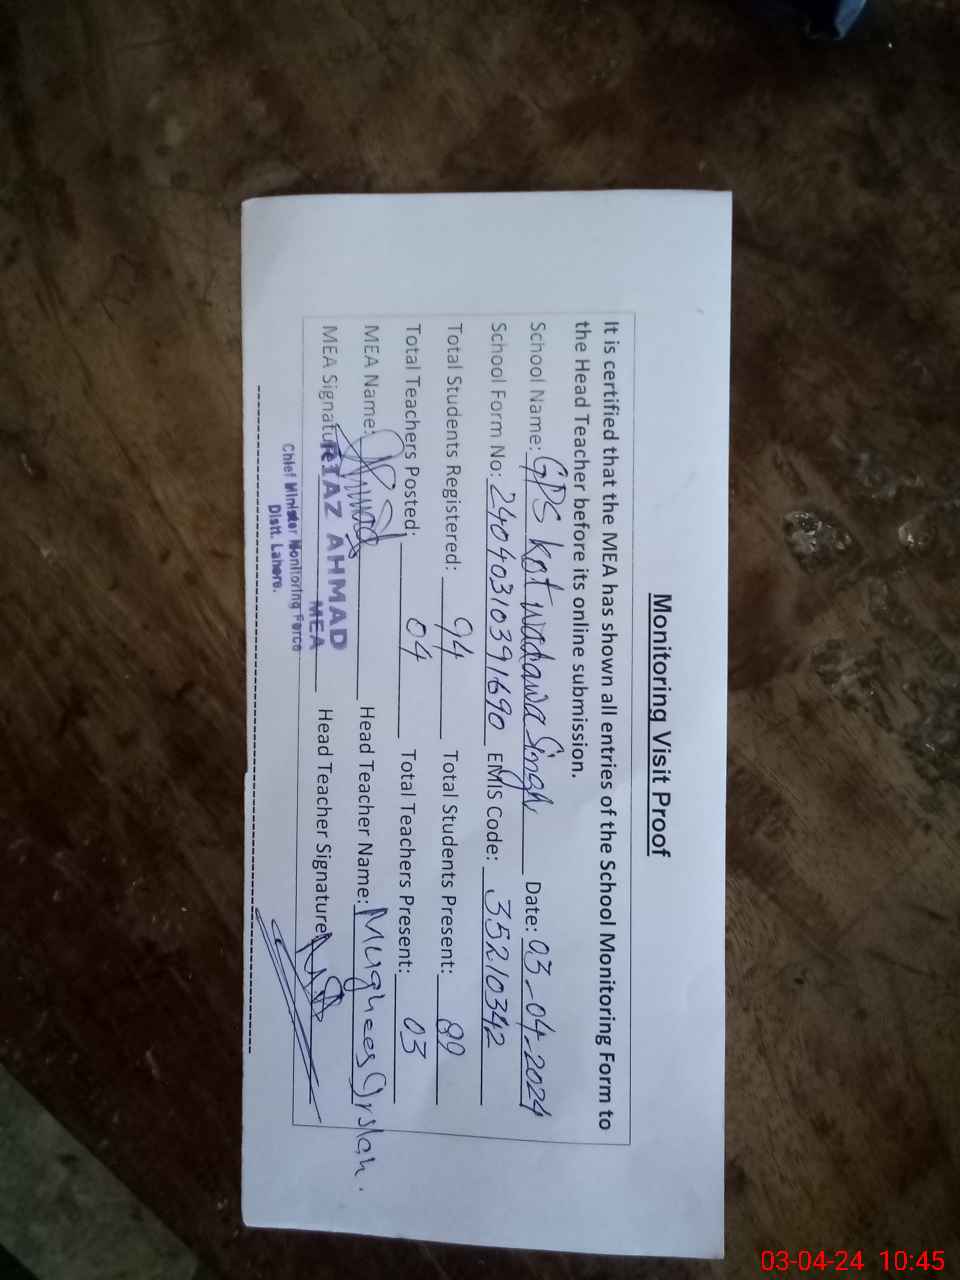 Monitoring Visit Proof
It is certified that the MEA has shown all entries of the School Monitoring Form to
the Head Teacher before its online submission.
School Name: GPS Kot Wadhawa Singh Date: 03-04-2024
School Form No: 24040310391690 EMIS Code: 35210342
Total Students Registered: 94 Total Students Present: 89
Total Teachers Posted: 04 Total Teachers Present: 03
MEA Name: Head Teacher Name: Mughees Arslan.
MEA Signature Head Teacher Signature
RIAZ AHMAD
MEA
Chief Minister Monitoring Force
Distt. Lahore.
03-04-24 10:45